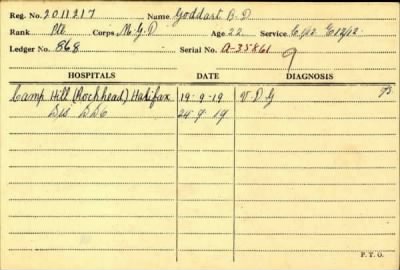 Reg. No. 2011217 Name Goddart B. D.
Rank Pte Corps M.G.D. Age 22 Service
Ledger No. 868 Serial No. A-35861
9
HOSPITALS DATE DIAGNOSIS
Camp Hill (Rockhead) Halifax 19-9-19 V D G
24-9-19
P. T. O.